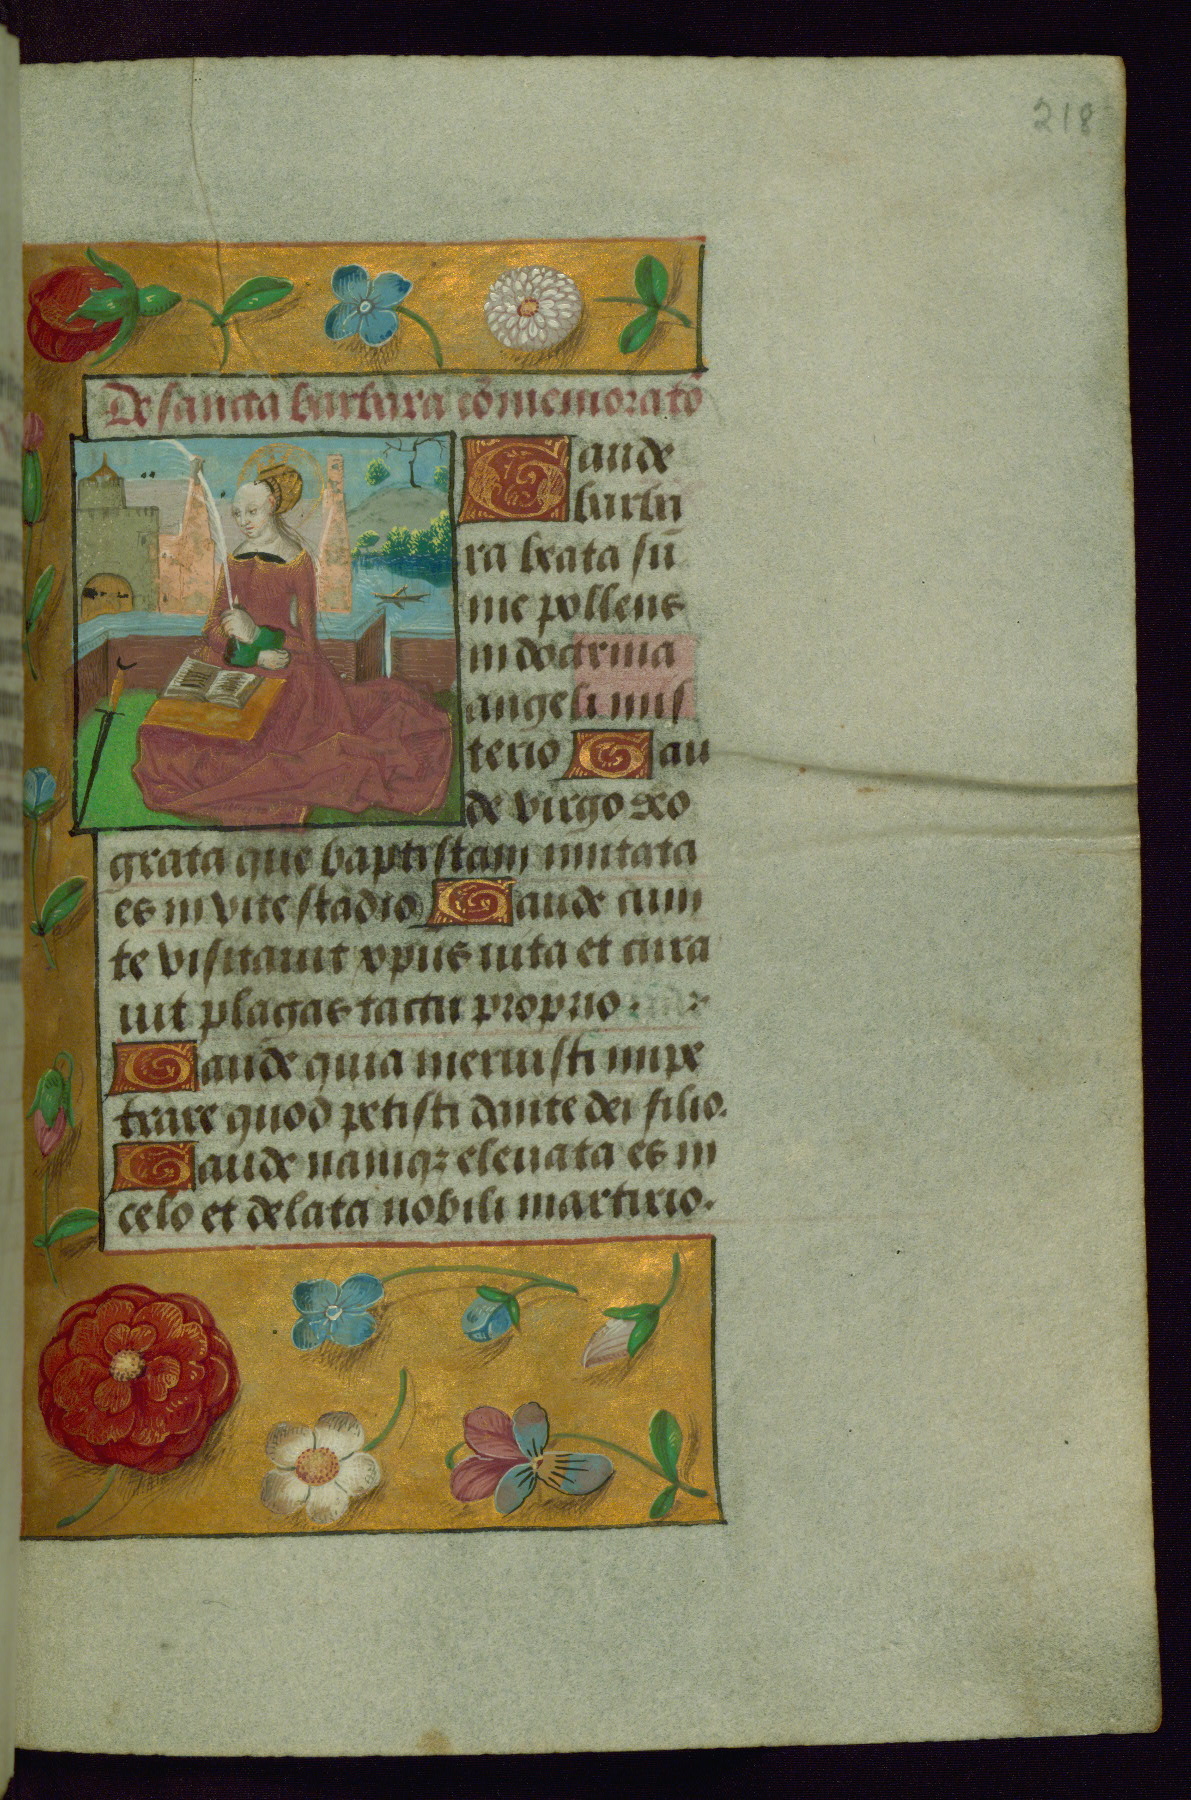 218
De sancta barbara cōmemoratō
Gaude
barba
ra beata sū
me pollens
in doctrina
angeli mis
terio Gau
de virgo deo
grata que baptistam imitata
es in vite stadio Gaude cum
te visitauit xpus uita et cura
uit plagas tactu proprio
Gaude quia meruisti impe
trare quod petisti dante dei filio.
Gaude namqꝫ eleuata es in
celo et delata nobili martirio.